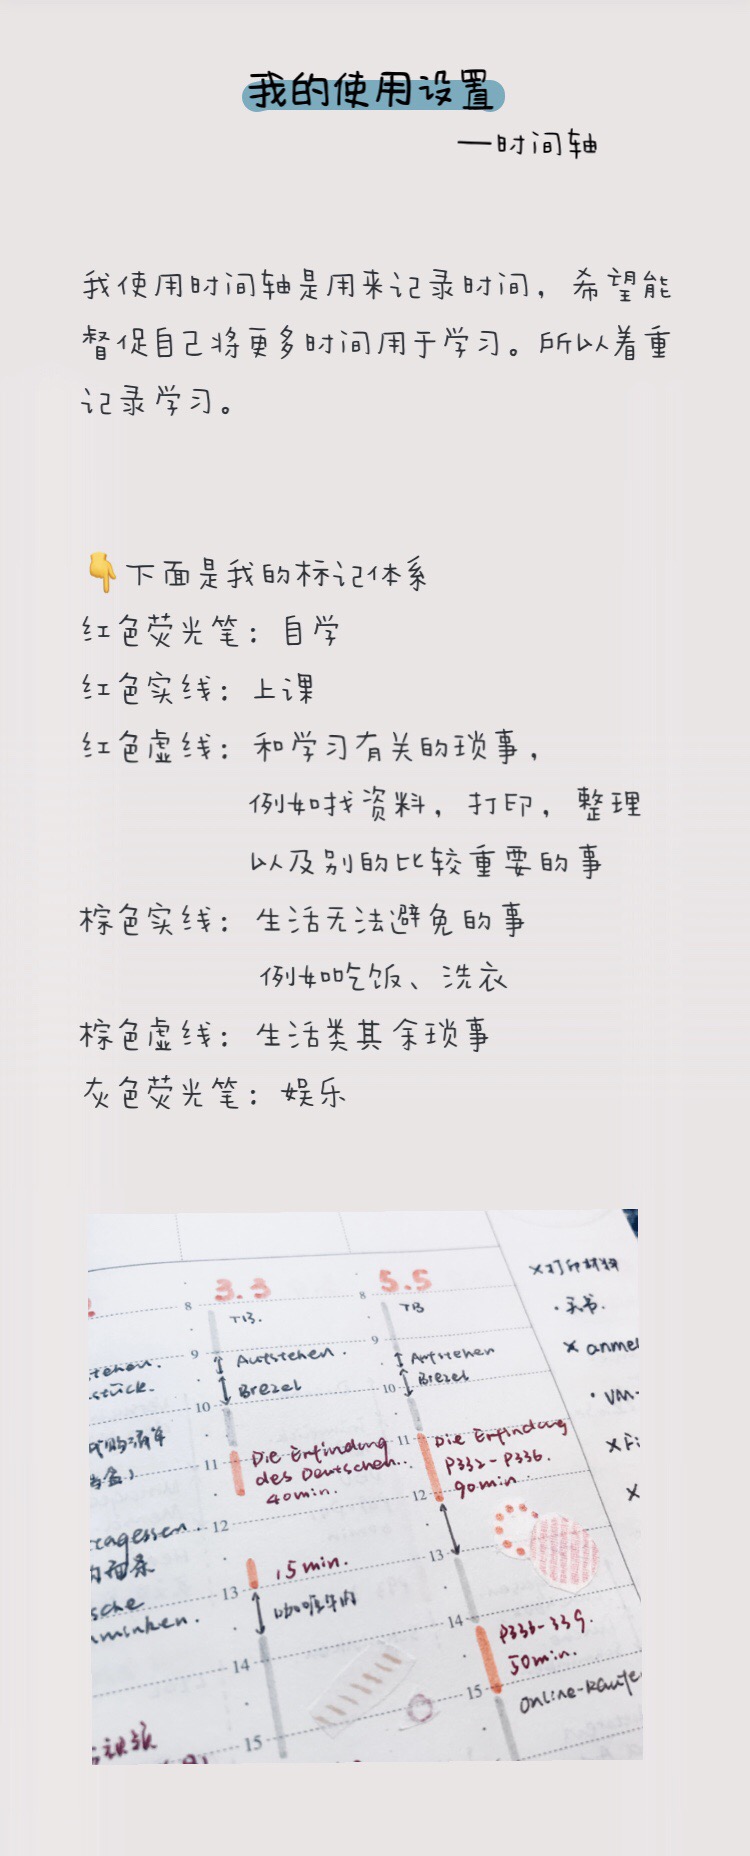 我的使用设置
—时间轴
我使用时间轴是用来记录时间，希望能
督促自己将更多时间用于学习。所以着重
记录学习。
👇下面是我的标记体系
红色荧光笔：自学
红色实线：上课
红色虚线：和学习有关的琐事，
例如找资料，打印，整理
以及别的比较重要的事
棕色实线：生活无法避免的事
例如吃饭、洗衣
棕色虚线：生活类其余琐事
灰色荧光笔：娱乐
3.3
5.5
8
TB.
8
TB
9
Aufstehen.
9
Aufstehen
Brezel
10
Brezel
10
11
Die Erfindung
des Deutschen.
40min.
11
Die Erfindung
P332-P336.
90min.
12
12
13
15min.
13
14
14
P333-339.
50min.
15
15
×打印材料